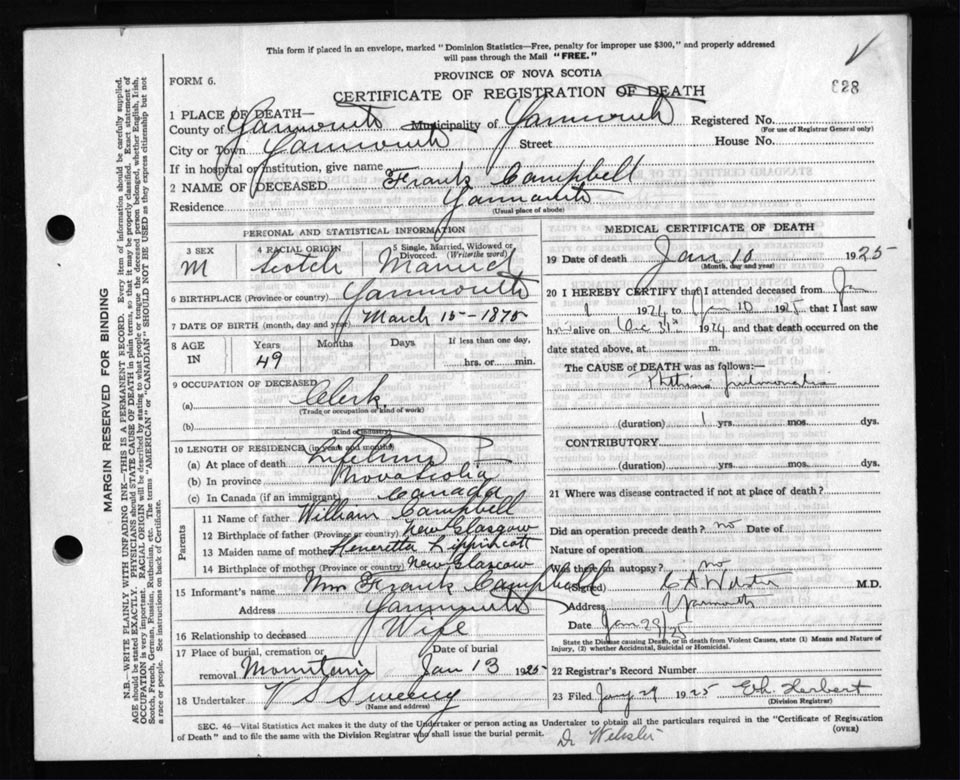 This form if placed in an envelope, marked "Dominion Statistics—Free, penalty for improper use $300," and properly addressed
will pass through the Mail "FREE."
PROVINCE OF NOVA SCOTIA
FORM 6.
CERTIFICATE OF REGISTRATION OF DEATH
628
1 PLACE OF DEATH—
County of Yarmouth Municipality of Yarmouth Registered No.
(For use of Registrar General only)
City or Town Yarmouth Street House No.
If in hospital or institution, give name
2 NAME OF DECEASED Frank Campbell
Residence Yarmouth
(Usual place of abode)
PERSONAL AND STATISTICAL INFORMATION
3 SEX M
4 RACIAL ORIGIN Scotch
5 Single, Married, Widowed or Divorced. (Write the word) Married
6 BIRTHPLACE (Province or country) Yarmouth
7 DATE OF BIRTH (month, day and year) March 15-1875
8 AGE IN Years 49 Months Days If less than one day, hrs. or min.
9 OCCUPATION OF DECEASED
(a) Clerk
(Trade or occupation or kind of work)
(b)
(Kind of industry)
10 LENGTH OF RESIDENCE (in years and months)
(a) At place of death Lifetime
(b) In province Nova Scotia
(c) In Canada (if an immigrant) Canada
Parents
11 Name of father William Campbell
12 Birthplace of father (Province or country) New Glasgow
13 Maiden name of mother Heneretta Lippincott
14 Birthplace of mother (Province or country) New Glasgow
15 Informant's name Mrs Frank Campbell
Address Yarmouth
16 Relationship to deceased Wife
17 Place of burial, cremation or removal Mountain
Date of burial Jan 13 1925
18 Undertaker V S Sweeny
(Name and address)
MEDICAL CERTIFICATE OF DEATH
19 Date of death Jan 10 1925
(Month, day and year)
20 I HEREBY CERTIFY that I attended deceased from Jan
1 1924 to Jan 10 1925 that I last saw
him alive on Dec 31st 1924 and that death occurred on
date stated above, at m.
The CAUSE of DEATH was as follows:—
Phthisis pulmonalis
(duration) 1 yrs. mos. dys.
CONTRIBUTORY
(duration) yrs. mos. dys.
21 Where was disease contracted if not at place of death?
Did an operation precede death? no Date of
Nature of operation
Was there an autopsy? no
(Signed) C A Webster M.D.
Address Yarmouth
Date Jan 29/25
State the Disease causing Death, or in death from Violent Causes, state (1) Means and Nature of
Injury, (2) whether Accidental, Suicidal or Homicidal.
22 Registrar's Record Number
23 Filed Jany 29 1925 Herbert
(Division Registrar)
SEC. 46—Vital Statistics Act makes it the duty of the Undertaker or person acting as Undertaker to obtain all the particulars required in the "Certificate of Registration
of Death" and to file the same with the Division Registrar who shall issue the burial permit.
(OVER)
Dr Webster
MARGIN RESERVED FOR BINDING
N.B.—WRITE PLAINLY WITH UNFADING INK—THIS IS A PERMANENT RECORD. Every item of information should be carefully supplied.
AGE should be stated EXACTLY. PHYSICIANS should STATE CAUSE OF DEATH in plain terms, so that it may be properly classified. Exact statement of
OCCUPATION is very important. RACIAL ORIGIN will be described by stating to what people or tongue the deceased person belonged, whether English, Irish,
Scotch, French, German, Russian, Ruthenian, etc. The terms "AMERICAN" or "CANADIAN" SHOULD NOT BE USED as they express citizenship but not
a race or people. See instructions on back of Certificate.